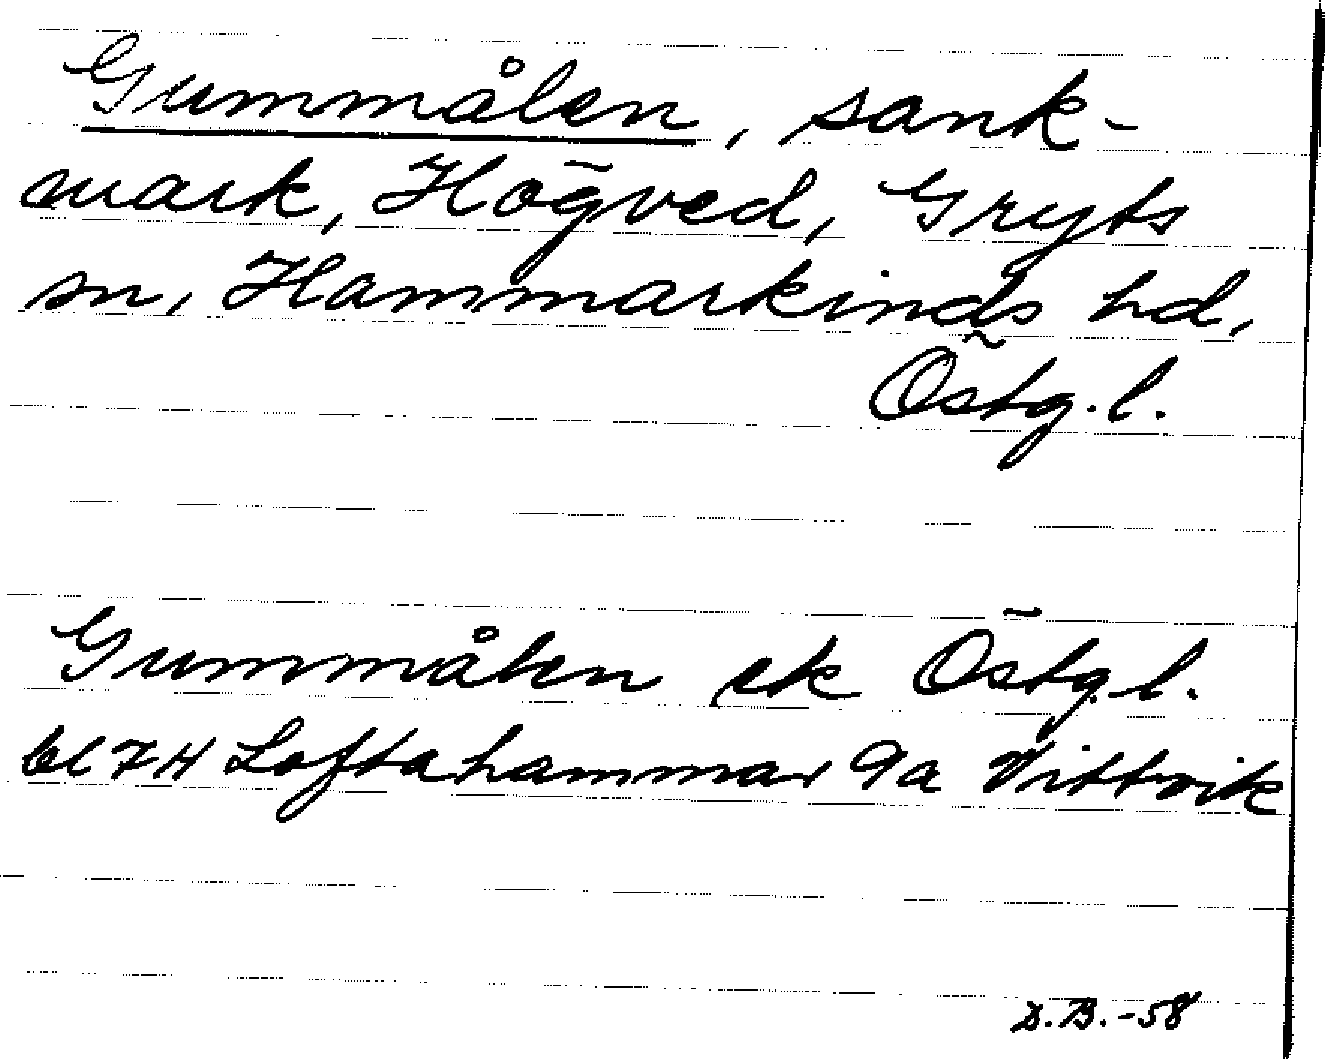 Gummålen, sank-
mark, Högved, Gryts
sn, Hammarkinds hd,
Östg.l.
Gummålen ek Östg.l.
bl 7H Loftahammar 9a Vittvik
D.B.-58